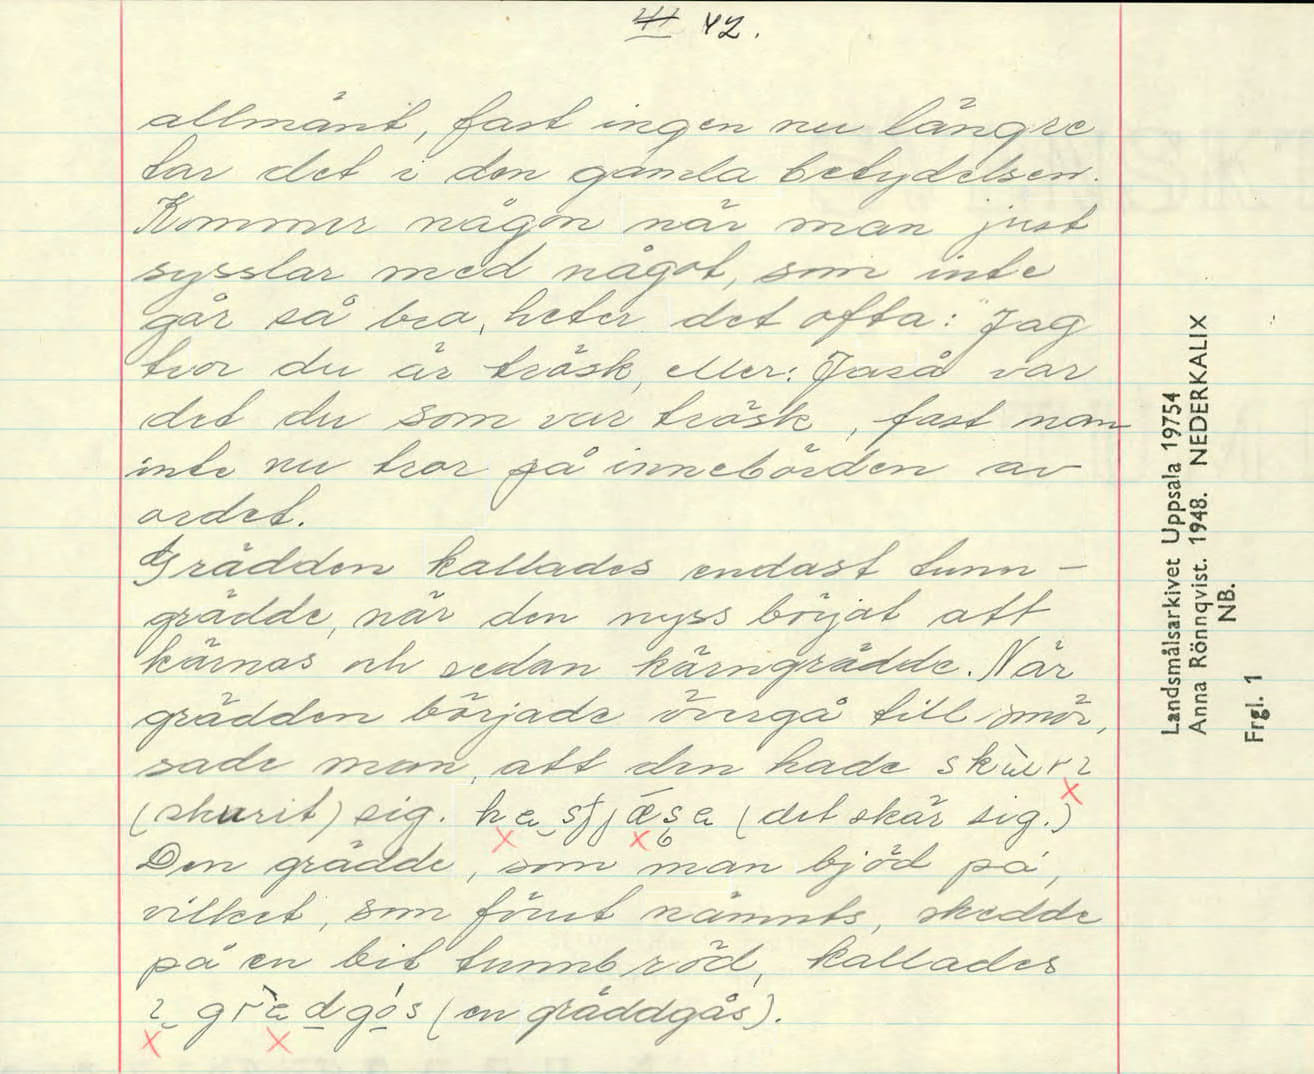 41 42.
allmänt, fast ingen nu längre
tar det i den gamla betydelsen.
Kommer någon när man just
sysslar med något, som inte
går så bra, heter det ofta: Jag
tror du är träsk, eller: Jaså var
det du som var träsk, fast man
inte nu tror på innebörden av
ordet.
Grädden kallades endast tunn-
grädde, när den nyss börjat att
kärnas och sedan kärngrädde. När
grädden började övergå till smör,
sade man, att den hade
(skurit) sig. (det skär sig.)
Den grädde, som man bjöd på,
vilket, som förut nämnts, skedde
på en bit tunnbröd, kallades
(en gräddgås).
Landsmålsarkivet Uppsala 19754
Anna Rönnqvist. 1948. NEDERKALIX
NB.
Frgl. 1